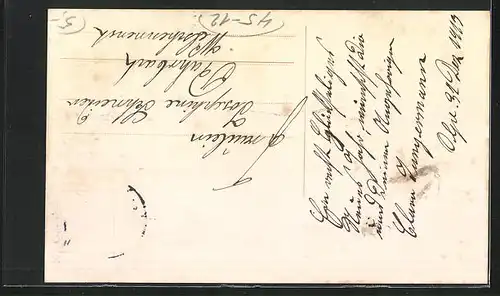 5,-
(45-12)
Fräulein
Josephine Schneider
Fahrbach
Ein recht glückseliges
Neues Jahr, wünscht Dir
und Deinen Angehörigen
Clem Jungermann
31 Dez 1919